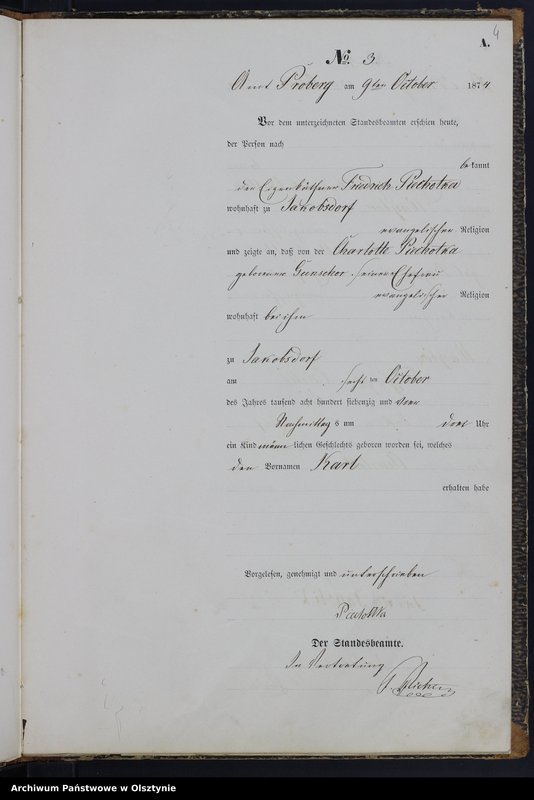 4
A.
No. 3
Amt Proberg am 9ten October 1874
Vor dem unterzeichneten Standesbeamten erschien heute,
der Person nach
bekannt
der Eigenkäthner Friedrich Puchotka
wohnhaft zu Jakobsdorf
evangelischer Religion
und zeigte an, daß von der Charlotte Puchotka
geborenen seiner Ehefrau
evangelischer Religion
wohnhaft bei ihm
zu Jakobsdorf
am sechs ten October
des Jahres tausend acht hundert siebenzig und vier
Nachmittag s um drei Uhr
ein Kind männ lichen Geschlechts geboren worden sei, welches
den Vornamen Karl
erhalten habe
Vorgelesen, genehmigt und unterschrieben
Der Standesbeamte.
In Vertretung
Archiwum Państwowe w Olsztynie